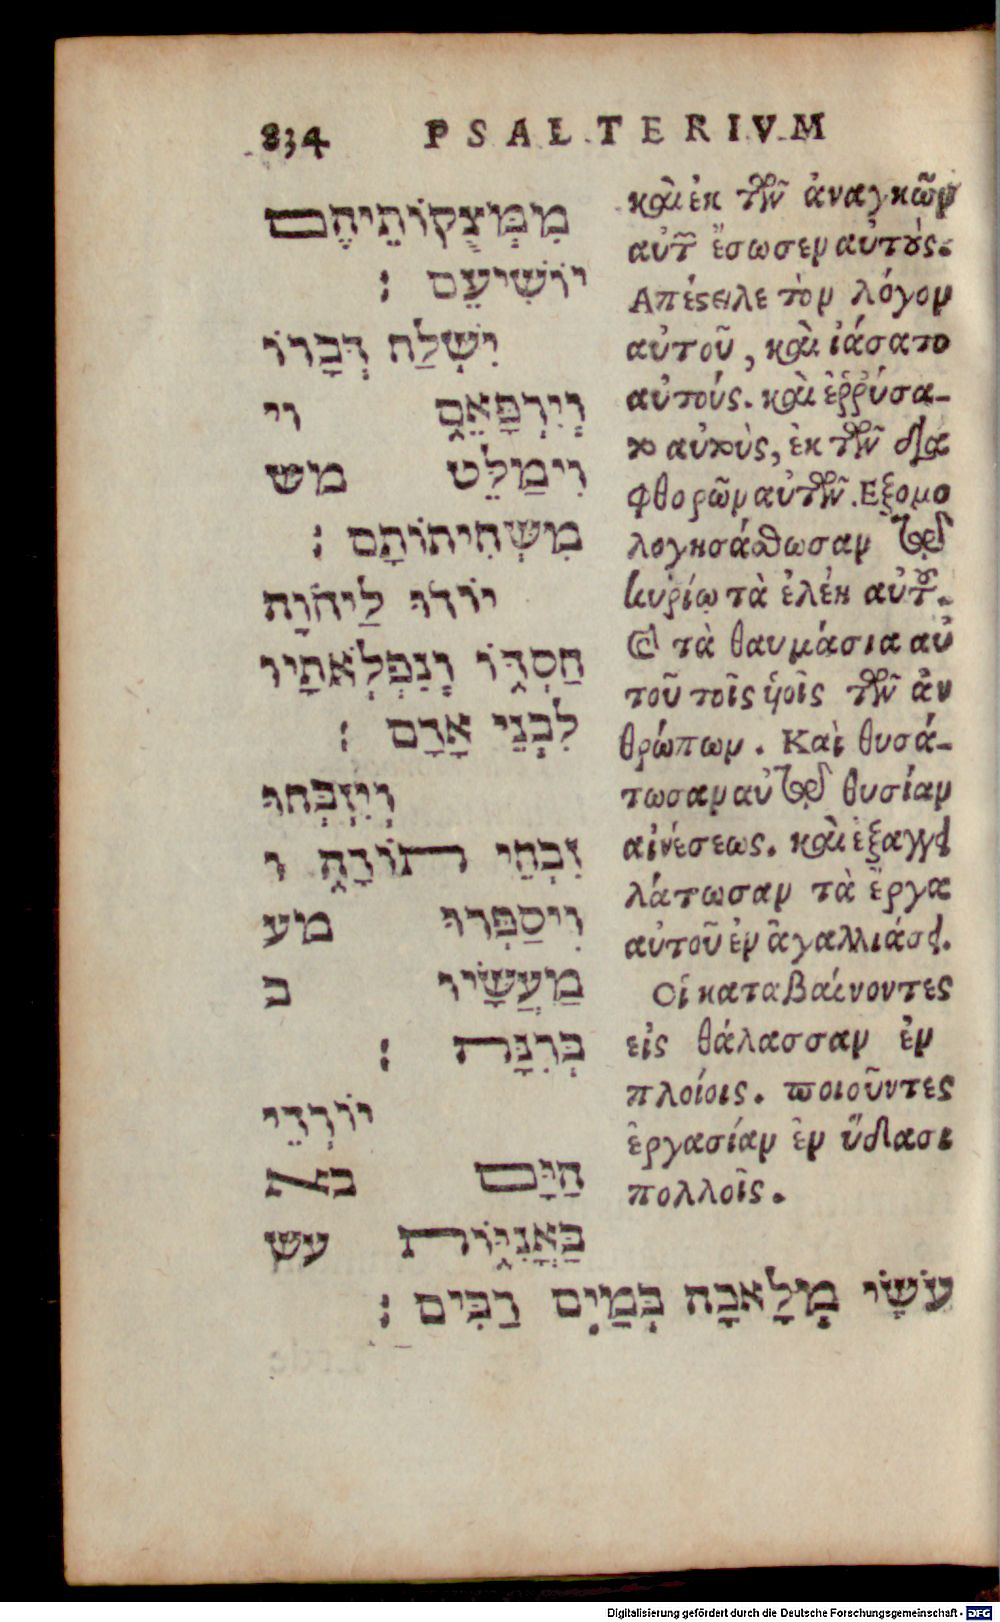 834 PSALTERIVM
מִמְּצֻקוֹתֵיהֶם
יוֹשִׁיעֵם :
יִשְׁלַח דְּבָרוֹ
וְיִרְפָּאֵם וי
וִימַלֵּט מש
מִשְּׁחִיתוֹתָם :
יוֹדוּ לַיהֹוָה
חַסְדּוֹ וְנִפְלְאֹתָיו
לִבְנֵי אָדָם :
וְיִזְבְּחוּ
זִבְחֵי תוֹדָה ו
וִיסַפְּרוּ מע
מַעֲשָׂיו ב
בְּרִנָּה :
יוֹרְדֵי
הַיָּם בא
בָּאֳנִיּוֹת עש
עֹשֵׂי מְלָאכָה בְּמַיִם רַבִּים :
καὶ ἐκ τῶν ἀναγκῶν
αὐτῶ ἔσωσεν αὐτούς.
Απέστειλε τὸν λόγον
αὐτοῦ, καὶ ἰάσατο
αὐτούς. καὶ ἐῤῥύσα-
το αὐτοὺς, ἐκ τῶν δια
φθορῶν αὐτῶν. Εξομο
λογησάσθωσαν τῷ
κυρίῳ τὰ ἐλέη αὐτοῦ.
καὶ τὰ θαυμάσια αὐ
τοῦ τοῖς ὑοῖς τῶν ἀν
θρώπων. Καὶ θυσά-
τωσαν αὐτῷ θυσίαν
αἰνέσεως. καὶ ἐξαγγει
λάτωσαν τὰ ἔργα
αὐτοῦ ἐν ἀγαλλιάσει.
Οἱ καταβαίνοντες
εἰς θάλασσαν ἐν
πλοίοις. ποιοῦντες
ἐργασίαν ἐν ὕδασι
πολλοῖς.
Digitalisierung gefördert durch die Deutsche Forschungsgemeinschaft - DFG